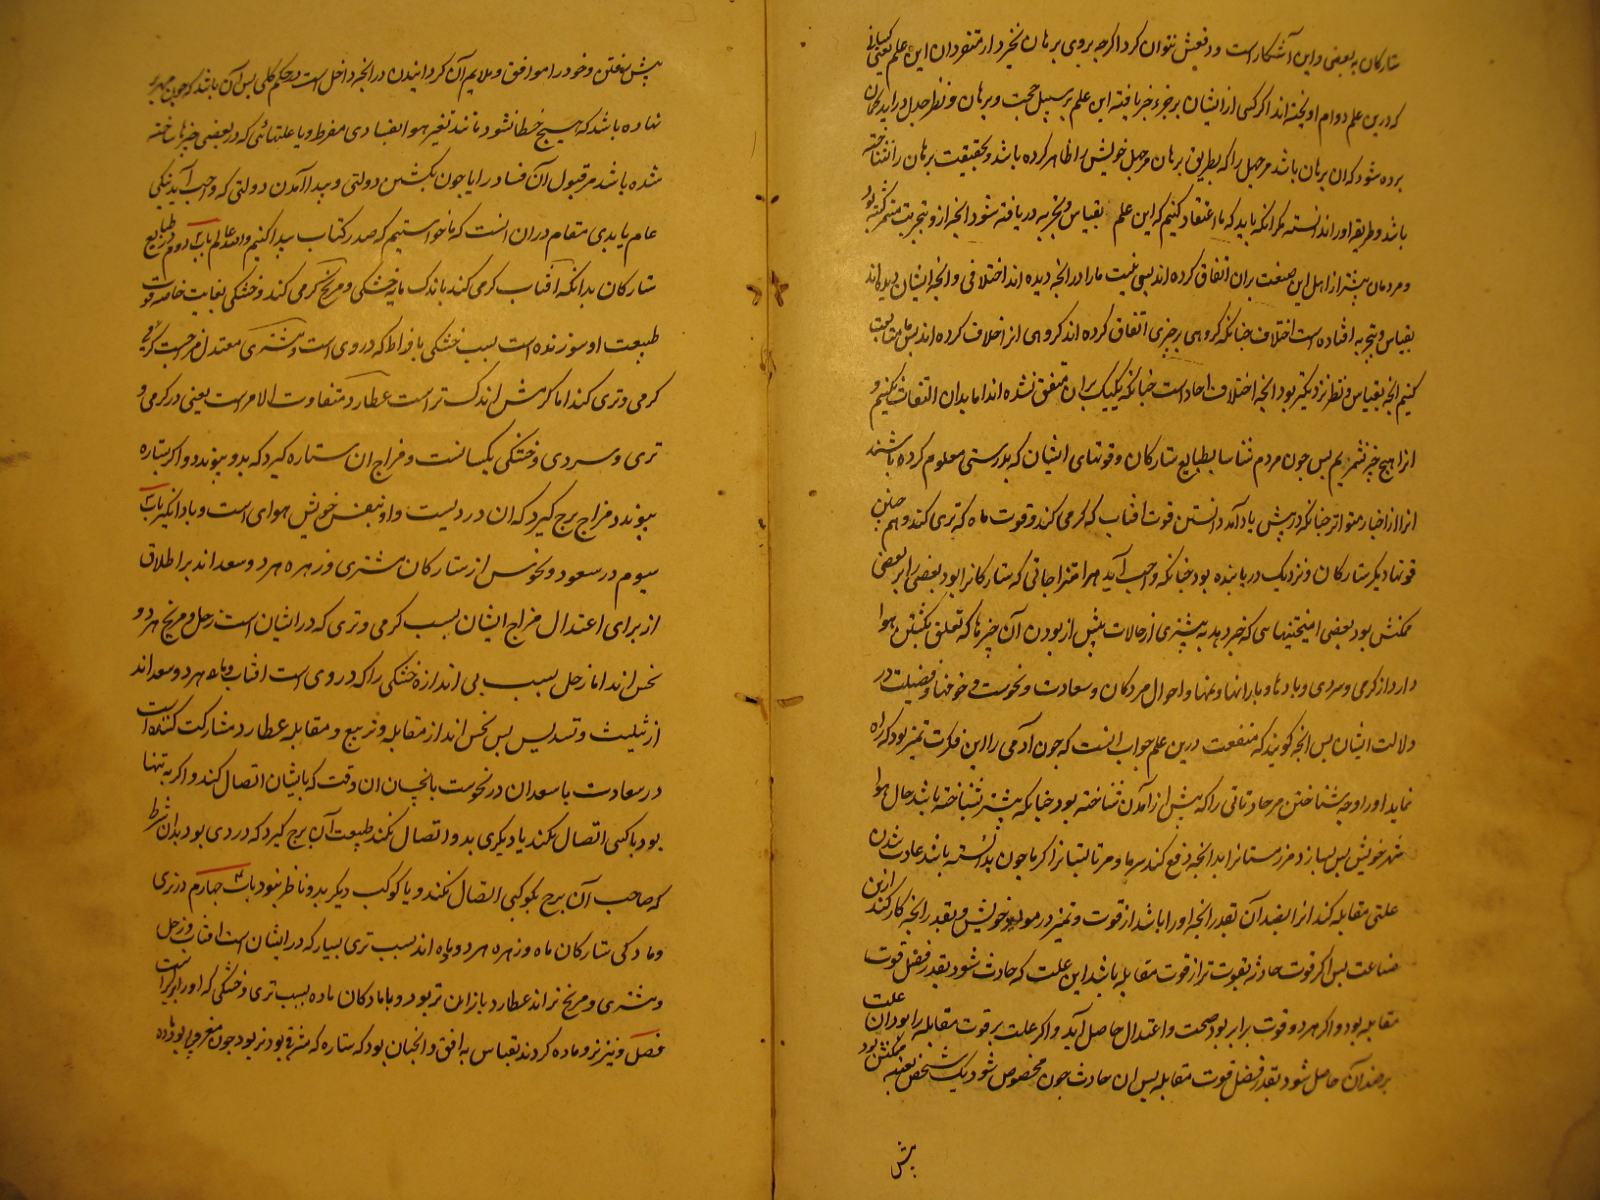 ستارکان به بعضی و این آشکار است و دفعش نتوان کرد اکرچه بروی برهان نخیزد از متفردان این علم یعنی کسانی
که درین علم دوام اوبخته اند اکر کسی از ایشان بر جزء خبر یافته این علم بر سبیل حجت و برهان و نظر جدل دراید کمان
برده شود که ان برهان باشد مر جهل را که بطریق برهان مر جهل خویش را ظاهر کرده باشد و بحقیقت برهان را نشناخته
باشد و طریقه اورا ندانسته مکر انکه باید که ما اعتقاد کنیم که این علم بقیاس و تجربه دریافته شود انچه از و بتجربت مستمر کشته بود
و مردمان پیشتر از اهل این صنعت بران اتفاق کرده اند بی غیبت مارا در انچه دیده اند اختلافی و انچه ایشان دیده اند
بقیاس و تجربه افتاده است اختلاف چنانکه کروهی بر چیزی اتفاق کرده اند کروهی از ان خلاف کرده اند پس ما متابعت
کنیم انچه بقیاس و نظر نزدیکتر بود انچه اختلاف احاد است چنانکه یکیک بران متفق نشده اند اما بدان التفات نکنیم و
انرا هیچ چیز نشمریم پس چون مردم شناسا بطبایع ستارکان و قوتهای ایشان که بدرستی معلوم کرده باشند
انرا از اخبار متواتر چنانکه در پیش یاد آمد دانستن قوت افتاب که کرمی کند و قوت ماه که تری کند و هم چنین
قوتها دیکر ستارکان و نزدیک دریابنده بود چنانکه واجب آید مر امتزاجاتی که ستارکانرا بود بعضی را بر بعضی
ممکنش بود بعضی امیختنیهاسی که خبر دهد به بیشتری از حالات پیش از بودن آن چیزها که تعلق بکشتن هوا
دارد از کرمی و سردی و بادها و بارانها و نمها و احوال مردکان و سعادت و نحوست و خوفها و فضیلت در
دلالت ایشان پس انچه کویند که منفعت درین علم جواب انست که چون آدمی را این فکرت تمیز بود که راه
نماید اورا وجه شناختن مر حادثاتی را که پیش از آمدن شناخته بود چنانکه پیشتر شناخته باشد حال هوا
شهر خویش پس بسازد مر زمستانرا بدانچه دفع کند سرما و مر تابستانرا کرما چون بدانسته باشد عادت شدن
علتی مقابله کند انرا بضد آن بقدر انچه اورا باشد از قوت و تمیز در مولود خویش و بقدر انچه کار کند از ین
صناعت پس اکر قوت حادثه بقوت تر از قوت مقابله باشد این علت که حادث شود بقدر فضل قوت
مقابله بود و اکر هر دو قوت برابر بود صحت و اعتدال حاصل آید و اکر علت بر قوت مقابله را بود ان علت
بر ضد آن حاصل شود بقدر فضل قوت مقابله پس ان حادث چون مخصوص شود بیک شخص بعینه ممکنش بود
پیش
پیش رفتن و خود را موافق و ملایم آن کردانیدن در انچه داخل است در حکم کلی پس آن باشد که چون
نهاده باشد که هیچ خطا نشود مانند تغیر هوا بفسادی مفرط و یا علتهائی که در بعضی چیزها ساخته
شده باشد مر قبول آن فساد را یا چون بکشتن دولتی و پیدا آمدن دولتی که واجب آید نیکی
عام یا بدی متقام دران انست که ما خواستیم که صدر کتاب پیدا کنیم والله عالم باب دوم در طبایع
ستارکان بدانکه آفتاب کرمی کند باندک مایه خشکی و مریخ کرمی کند و خشکی بغایت خاصه قوت
طبیعت او سوزنده است بسبب خشکی بافراط که در وی است و مشتری معتدل مزاجست کرمی
کرمی و تری کند اما کرمیش اندک تر است عطارد متفاوت الامر است یعنی در کرمی و
تری و سردی و خشکی یکسانست و مزاج ان ستاره کیرد که بدو پیوندد و اکر ستاره
پیوندد مزاج برج کیرد که ان در دیست و او بنفس خویش هوای است و باد انکیز باب
سیوم در سعود و نحوس از ستارکان مشتری و زهره هر دو سعد اند بر اطلاق
از برای اعتدال مزاج ایشان بسبب کرمی و تری که در ایشان است زحل و مریخ هر دو
نحس اند اما زحل بسبب بی اندازه خشکی را که در وی است افتاب و ماه هر دو سعد اند
از تثلیث و تسدیس پس نحس اند از مقابله و تربیع و مقابله عطارد مشارکت کننده است
در سعادت با سعدان در نحوست با نحسان ان وقت که بایشان اتصال کند و اکر به تنها
بود با کسی اتصال نکند یا دیکری بدو اتصال نکند طبیعت آن برج کیرد که در دی بود بدان شرط
که صاحب آن برج بکوکبی اتصال نکند و یا کوکب دیکر بدو ناظر نبود باب چهارم در نری
و مادکی ستارکان ماه و زهره هر دو ماده اند بسبب تری بسیار که در ایشان است افتاب و زحل
و مشتری و مریخ نر اند عطارد با نران نر بود و با مادکان ماده بسبب تری و خشکی که اورا برابر است
فصل و نیز نر و ماده کردند بقیاس به افق و انچنان بود که ستاره که مشرقی بود نر بود چون مغربی بود ماده